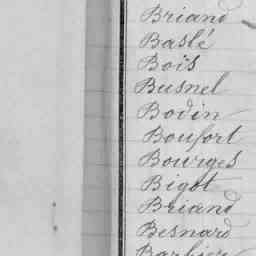 Briand
Baslé
Bois
Busnel
Bodin
Boufort
Bourges
Bigot
Briand
Besnard
Barbier